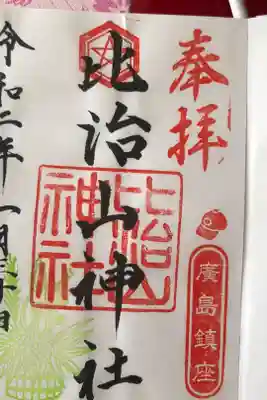 奉拝
廣島鎮座
比治山神社
比治山神社
令和二年一月二十日